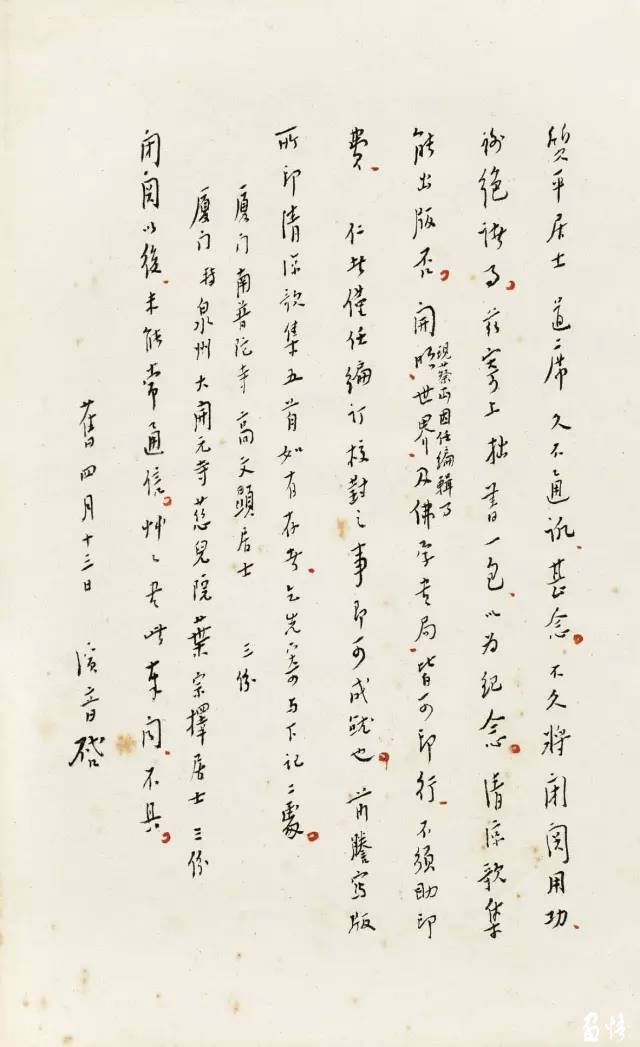 质平居士道席 久不通讯、甚念。不久将闭関用功、
谢绝诸事。兹寄上拙书一包、以为纪念。清凉歌集
能出版否。開明、世界、及佛学书局、皆可印行、不须助印
现蔡丏因任编辑事
费、仁者僅任编订校對之事即可成就也。前謄写版
所印清凉歌集五首如有存者、乞先寄与下记二處。
厦门南普陀寺高文顯居士 三份
厦门转泉州大開元寺慈兒院葉宗擇居士三份
闭関以後、未能常通信。草々書此奉闻、不具。
舊四月十三日 演音啓